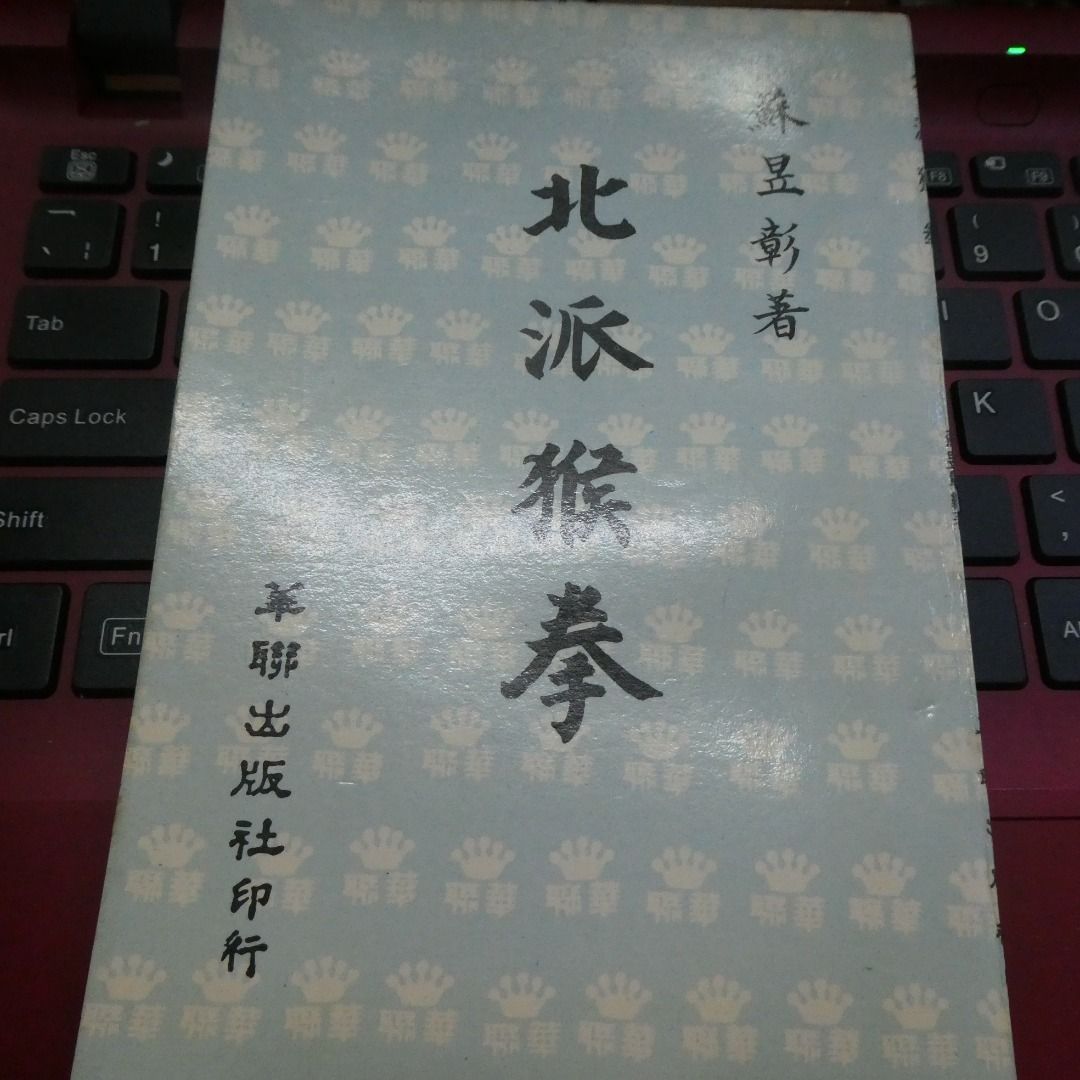 蘇昱彰著
北派猴拳
華聯出版社印行
Esc
! 1
F8
F9
( 9
Tab
I
O
Caps Lock
K
Shift
< ,
Fn